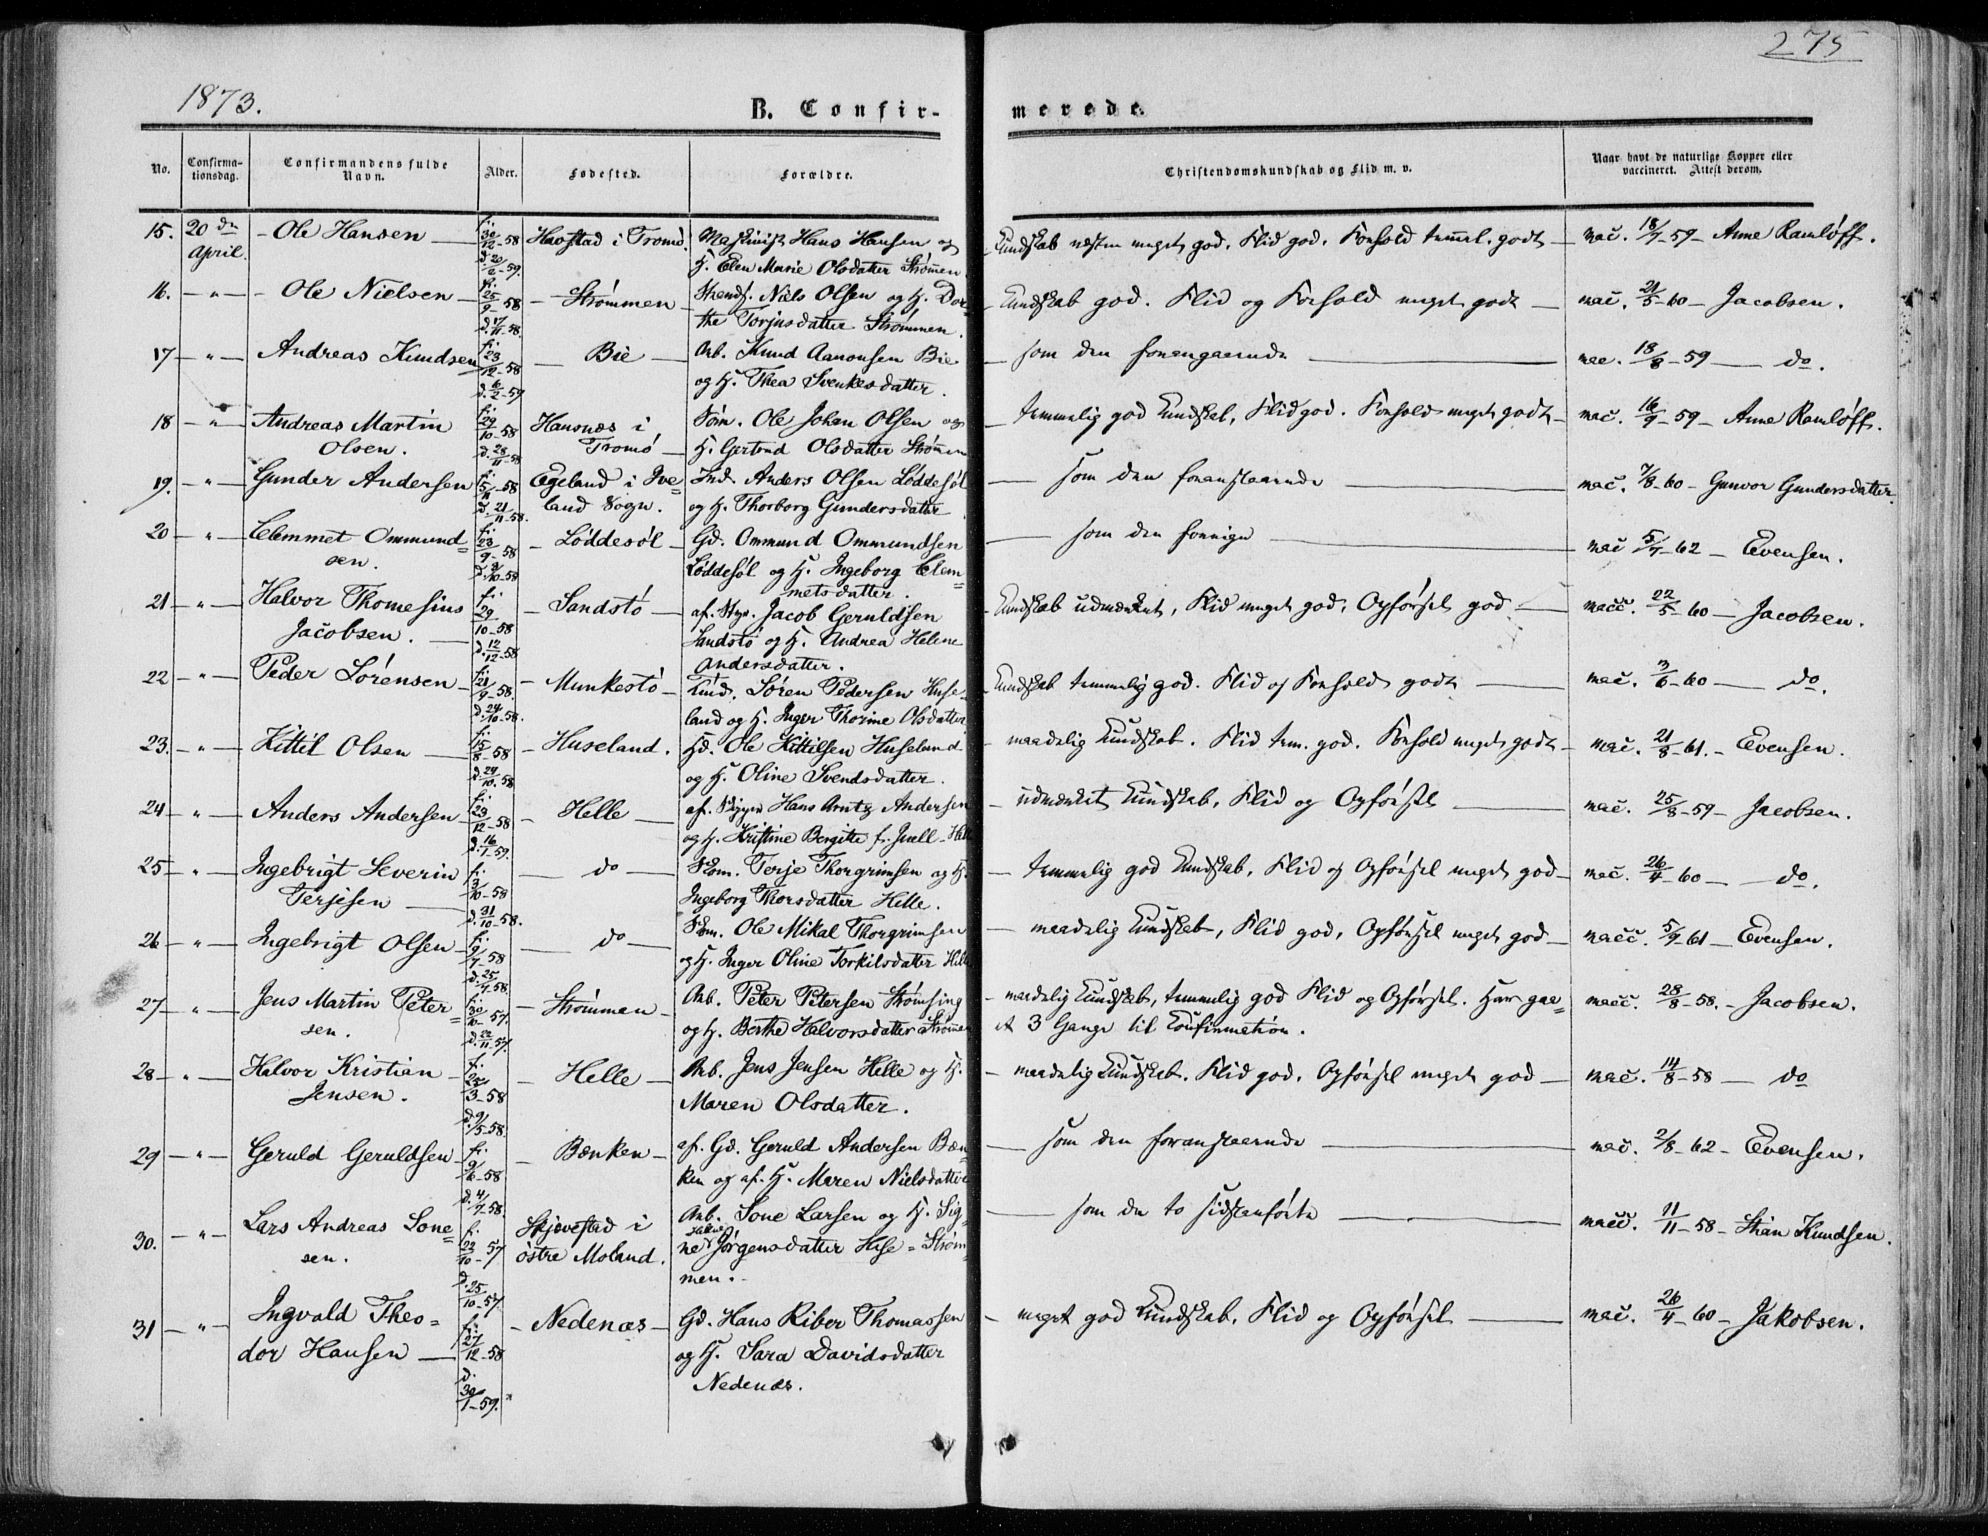 275
1873.
B. Confir-
merede.
No.
Confirma-
tionsdag.
Confirmandens fulde
Navn.
Alder.
Fødested.
Forældre.
Christendomskundskab og Flid m. v.
Naar havt de naturlige Kopper eller
vaccineret. Attest derom.
15. 20 de April. Ole Hansen f. 30/12-58 d. 20/2-59. Havstad i Tromø. Maskinist Hans Hansen og
H. Elen Marie Olsdatter Strømmen
Kundskab næsten meget god, Flid god, Forhold temmel. godt vac. 18/7-59 Anne Ramløff.
16. " Ole Nielsen f. 25/9-58 d. 17/11-58. Strømmen Niels Olsen og H. Dor-
the Torjusdatter Strømmen.
Kundskab god. Flid og Forhold meget godt vac. 21/5-60 Jacobsen.
17 " Andreas Knudsen f. 23/12-58 d. 6/2-59 Bie Arb. Knud Aanonsen Bie
og H. Thea Svenkesdatter.
som den foregaaende vac. 18/8-59 do.
18 " Andreas Martin
Olsen. f. 29/10-58 d. 28/11-58 Hausnæs i
Tromø Tøm. Ole Johan Olsen og
H. Gertrud Olsdatter Strømmen
temmelig god Kundskab, Flid god. Forhold meget godt vac. 16/9-59 Anne Ramløff.
19. " Gunder Andersen f. 5/11-58 d. 21/11-58. Egeland i Ive-
land Sogn. Ind. Anders Olsen Løddesøl
og H. Thorborg Gundersdatter
som den foranstaaende vac. 7/8-60 Gunvor Gundersdatter
20 " Clemmet Ommund-
sen. f. 23/9-58 Løddesøl Gd. Ommund Ommundsen
Løddesøl og H. Ingeborg Clem-
metsdatter.
som den forrige vac 5/7-62 Evensen.
21 " Halvor Thomesius
Jacobsen. f. 29/10-58 d. 12/12-58 Sandstø af. Styr. Jacob Geruldsen
Sandstø og H. Andrea Helene
Andersdatter.
Kundskab udmærket, Flid meget god, Opførsel god vacc. 22/5-60 Jacobsen.
22 " Peder Sørensen f. 21/9-58 d. 24/10-58. Munkestø Søren Pedersen Huse-
land og H. Inger Thorine Olsdatter
Kundskab temmelig god. Flid og Forhold godt vac. 3/6-60 do.
23. " Kittil Olsen f. 15/8-58 d. 24/10-58 Huseland. Gd. Ole Kittilsen Huseland
og H. Oline Svendsdatter.
maadelig Kundskab. Flid tem. god. Forhold meget godt vac. 21/8-61. Evensen.
24 " Anders Andersen f. 23/12-58 d. 16/1-59. Helle af. Skipper Hans Arntz Andersen
og H. Kristine Bergitte f. Juell Helle
udmærket Kundskab, Flid og Opførsel vac. 25/8-59 Jacobsen.
25 " Ingebrigt Severin
Terjesen f. 3/10-58 d. 31/10-58. do Tøm. Terje Thorgrimsen og H.
Ingeborg Thorsdatter Helle.
temmelig god Kundskab, Flid og Opførsel meget god vac. 26/4-60 do.
26 " Ingebrigt Olsen f. 9/7-58 d. 25/7-58. do Tøm. Ole Mikal Thorgrimsen
og H. Inger Oline Torkilsdatter Helle
maadelig Kundskab, Flid god, Opførsel meget god vacc. 5/9-61 Evensen.
27 " Jens Martin Peter-
sen. f. 30/10-57. d. 22/11-57. Strømmen Arb. Peter Petersen Strømsing
og H. Berthe Halvorsdatter Strømmen
maadelig Kundskab, temmelig god Flid og Opførsel. Har gaa-
et 3 Gange til Confirmation. vacc. 28/8-58. Jacobsen.
28 " Halvor Kristian
Jensen. f. 25/3-58 d. 9/5-58. Helle Arb. Jens Jensen Helle og H.
Maren Olsdatter.
maadelig Kundskab. Flid god. Opførsel meget god vac. 14/8-58 do
29 " Geruld Geruldsen f. 9/6-58 d. 4/7-58. Bænken af. Gd. Geruld Andersen Bæn-
ken og af. H. Maren Nielsdatter
som den foranstaaende vac. 2/8-62 Evensen.
30. " Lars Andreas Sone-
sen. f. 22/10-57 d. 25/10-57. Skjevestad i
østre Moland. Arb. Sone Larsen og H. Sig-
ne Jørgensdatter Hise-Strøm-
men.
som de to sidstanførte vacc. 11/11-58 Stian Knudsen.
31 " Ingvald Theo-
dor Hansen f. 27/12-58 d. 30/1-59. Nedenæs Gd. Hans Riber Thomassen
og H. Sara Davidsdatter
Nedenæs.
meget god Kundskab, Flid og Opførsel vac. 26/4-60 Jakobsen.